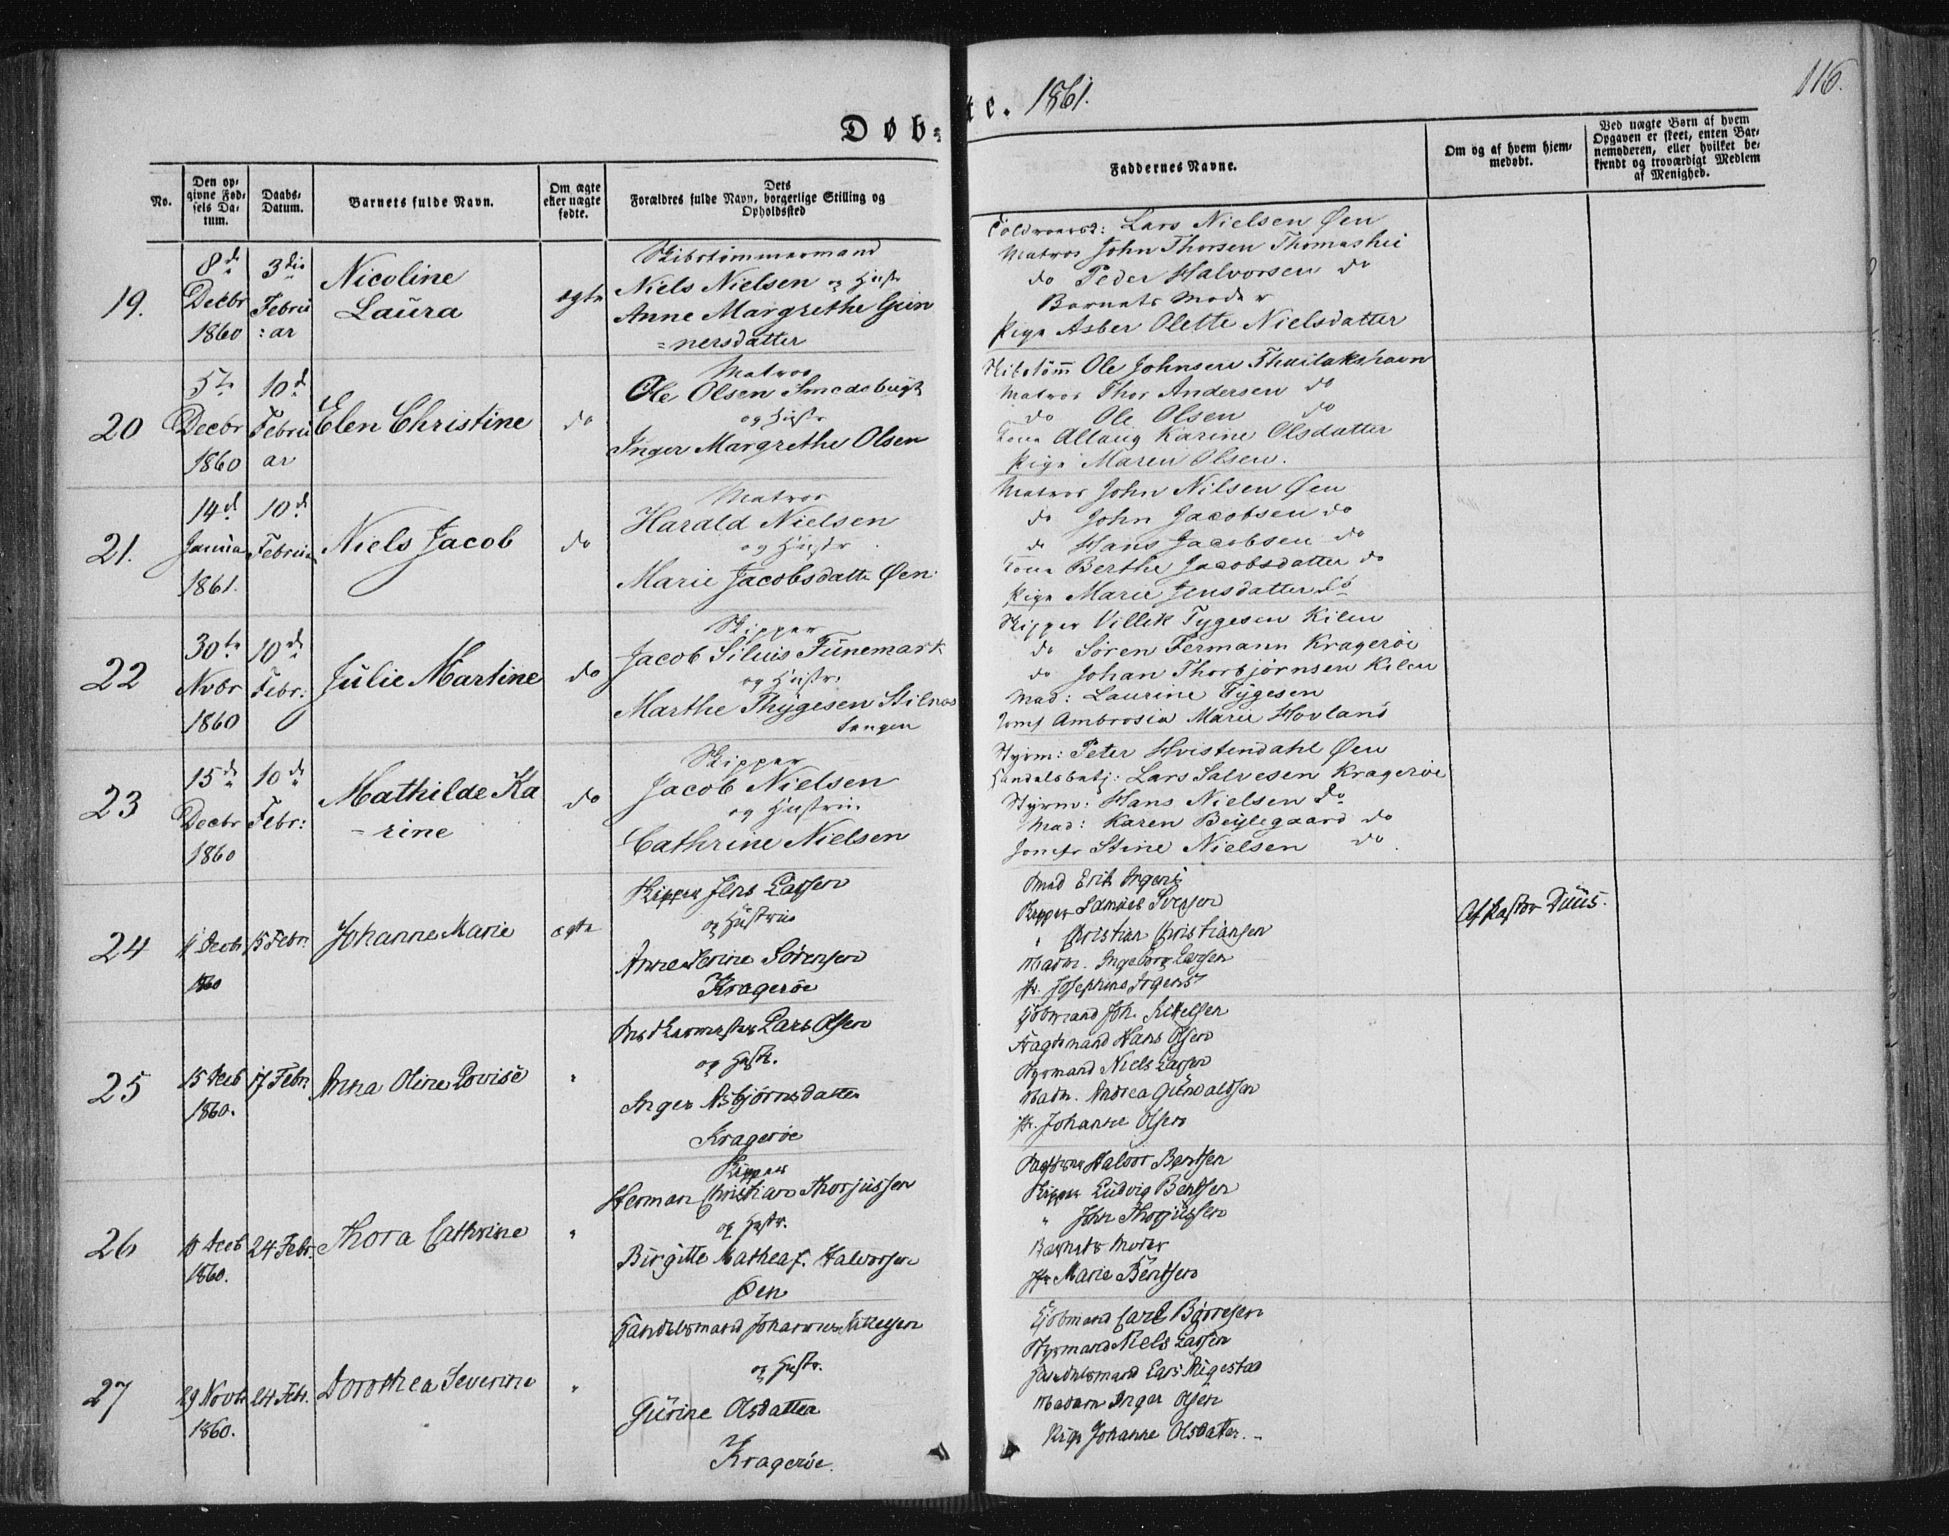 116.
Døb-
te. 1861.
No.
Den op-
givne Fød-
sels Da-
tum.
Daabs-
Datum.
Barnets fulde Navn.
Om ægte
eller uægte
fødte.
Dets
Forældres fulde Navn, borgerlige Stilling og
Opholdsted
Faddernes Navne.
Om og af hvem hjem-
medøbt.
Ved uægte Børn af hvem
Opgaven er skeet, enten Bar-
nemoderen, eller hvilket be-
kjendt og troværdigt Medlem
af Menighed.
19.
8de
Decbr
1860
3die
Februa
:ar
Nicoline
Laura
ægte
Skibstømmermand
Niels Nielsen og Hustr
Anne Margrethe Gun
=nersdatter
Lars Nielsen Øen
Matros John Thorsen Thomashei
do Peder Halvorsen do
Barnets Moder
Pige Asber Olette Nielsdatter
20
5te
Decbr
1860
10de
Februa
ar
Elen Christine
do
Matros
Ole Olsen Smedsbugt
og Hustr
Inger Margrethe Olsen
Skibstømm Ole Johnsen
Matros Thor Andersen do
do Ole Olsen do
Kone Allaug Karine Olsdatter
Pige Maren Olsen.
21.
14de
Janua
1861.
10de
Februa
Niels Jacob
do
Matros
Harald Nielsen
og Hustr
Marie Jacobsdatte Øen.
Matros John Nilsen Øen
do John Jacobsen do
do Hans Jacobsen do
Kone Berthe Jacobsdatter do
Pige Marie Jensdatter do
22
30te
Nvbr
1860
10de
Febr:
Julie Martine
do
Skipper
Jacob Siluis Tunemark
og Hustr.
Marthe Thygesen Stilnes
tangen
Skipper Villik Tygesen Kilen
do Søren Fermann Kragerøe
do Johan Thorbjørnsen Kilen
Mad: Laurine Tygesen
Jomf Ambrosia Marie Hovland
23
15de
Decbr
1860
10de
Febr:
Mathilde Ka
=rine
do
Skipper
Jacob Nielsen
og Hustrue
Cathrine Nielsen
Styrm: Peter Hvistendahl Øen
Handelsbetj: Lars Salvesen Kragerøe
Styrm: Hans Nielsen do
Mad: Karen Beylegaard do
Jomfr Stine Nielsen do
24
11 Decbr
1860
15 Febr.
Johanne Marie
ægte
Skipper Jens Larsen
og Hustrue
Anne Serine Sørensen
Kragerøe
Skipper Samuel Iversen
" Christian Christiansen
Madm. Ingeborg Larsen
Af Pastor Duus.
25
15 Decb
1860.
17 Febr.
Anna Oline Lovise
"
Lars Olsen
og Hustr.
Inger Asbjørnsdatter
Kragerøe
Kjøbmand Joh. Kittelsen
Fragtemand Hans Olsen
Styrmand Niels Larsen
Madm. Andrea Gunvaldsen
Johanne Olsen
26
11 Decb
1860.
24 Febr.
Thora Cathrine
"
Skipper
Herman Christian Thorjussen
og Hustr.
Birgitte Mathea f. Halvorsen
Øen
Halvor Bentsen
Skipper Ludvig Bentsen
" John Thorjussen
Barnets Moder
Marie Bentsen
27
29 Novbr
1860.
24 Febr.
Dorothea Severine
"
Handelsmand Johannes Kittelsen
og Hustr.
Gurine Olsdatter
Kragerøe.
Kjøbmand Carl Børresen
Styrmand Niels Larsen
Handelsmand Lars Rigestad
Madam Inger Olsen
Pige Johanne Olsdatter.